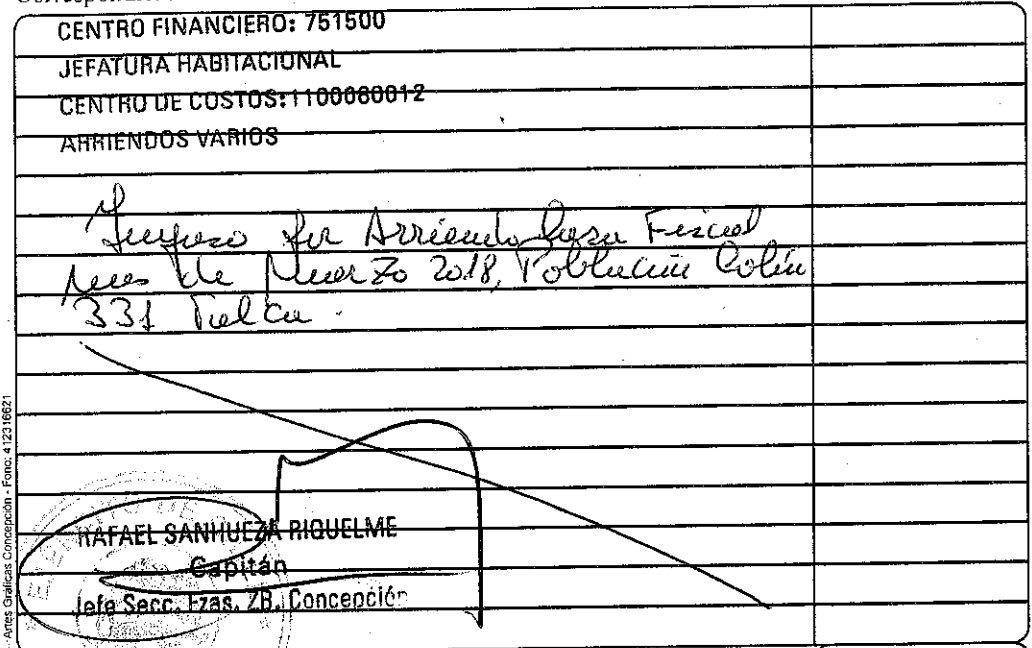 CENTRO FINANCIERO: 751500
JEFATURA HABITACIONAL
CENTRO DE COSTOS: 1100060012
ARRIENDOS VARIOS
Ingreso por Arriendo Casa Fiscal
mes de Marzo 2018, Población Colín
331 Talca.
RAFAEL SANHUEZA RIQUELME
Capitán
Jefe Secc. Fzas. ZB. Concepción
Artes Gráficas Concepción - Fono: 412316621